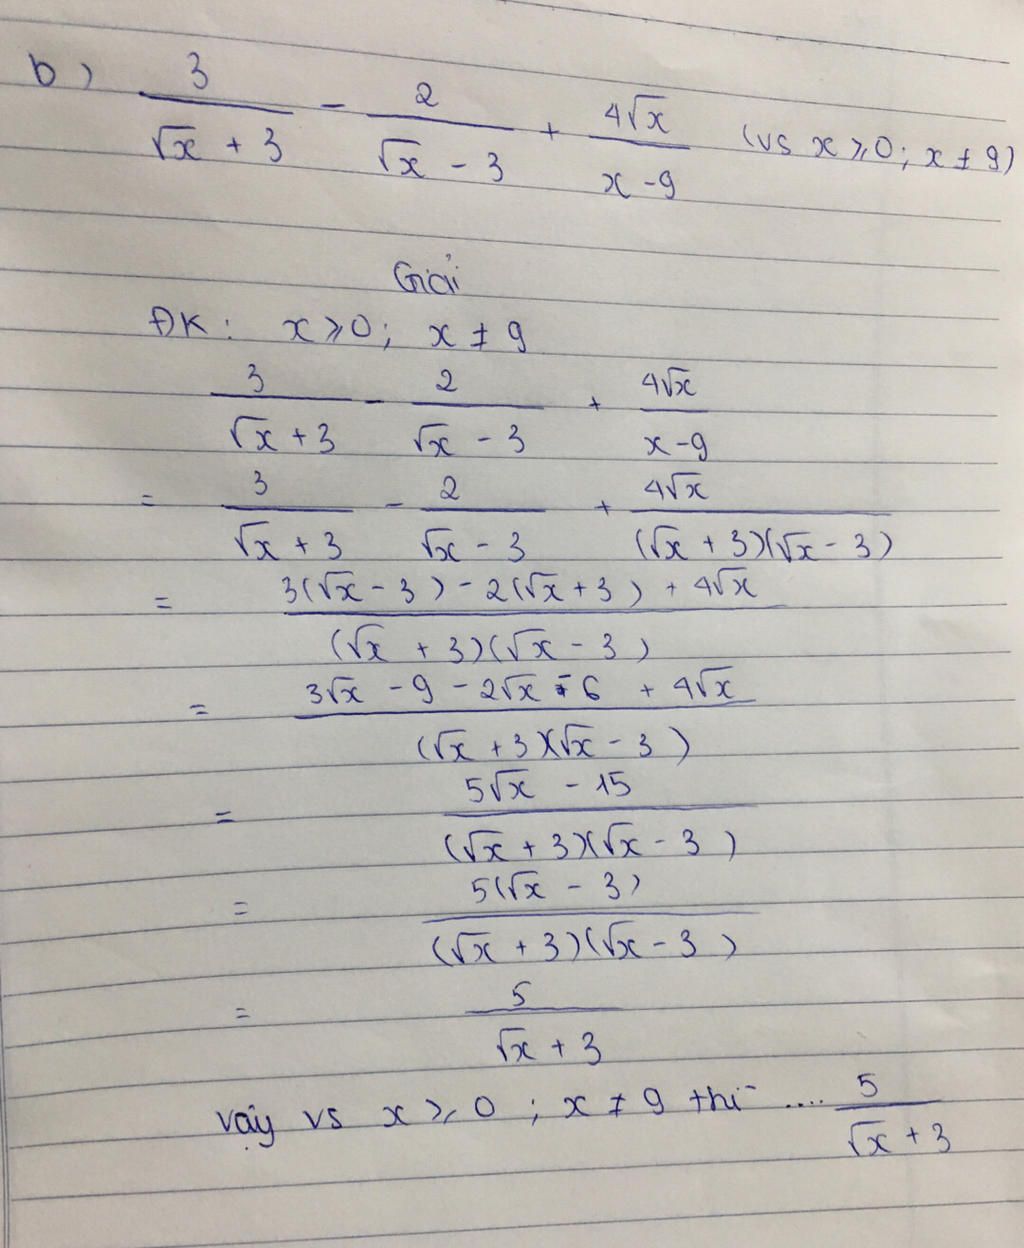 b) 3/(√x + 3) - 2/(√x - 3) + 4√x/(x - 9) (vs x ⩾ 0; x ≠ 9)
Giải
ĐK: x ⩾ 0; x ≠ 9
3/(√x + 3) - 2/(√x - 3) + 4√x/(x - 9)
= 3/(√x + 3) - 2/(√x - 3) + 4√x/((√x + 3)(√x - 3))
= (3(√x - 3) - 2(√x + 3) + 4√x)/((√x + 3)(√x - 3))
= (3√x - 9 - 2√x - 6 + 4√x)/((√x + 3)(√x - 3))
= (5√x - 15)/((√x + 3)(√x - 3))
= 5(√x - 3)/((√x + 3)(√x - 3))
= 5/(√x + 3)
Vậy vs x ⩾ 0; x ≠ 9 thì .... 5/(√x + 3)